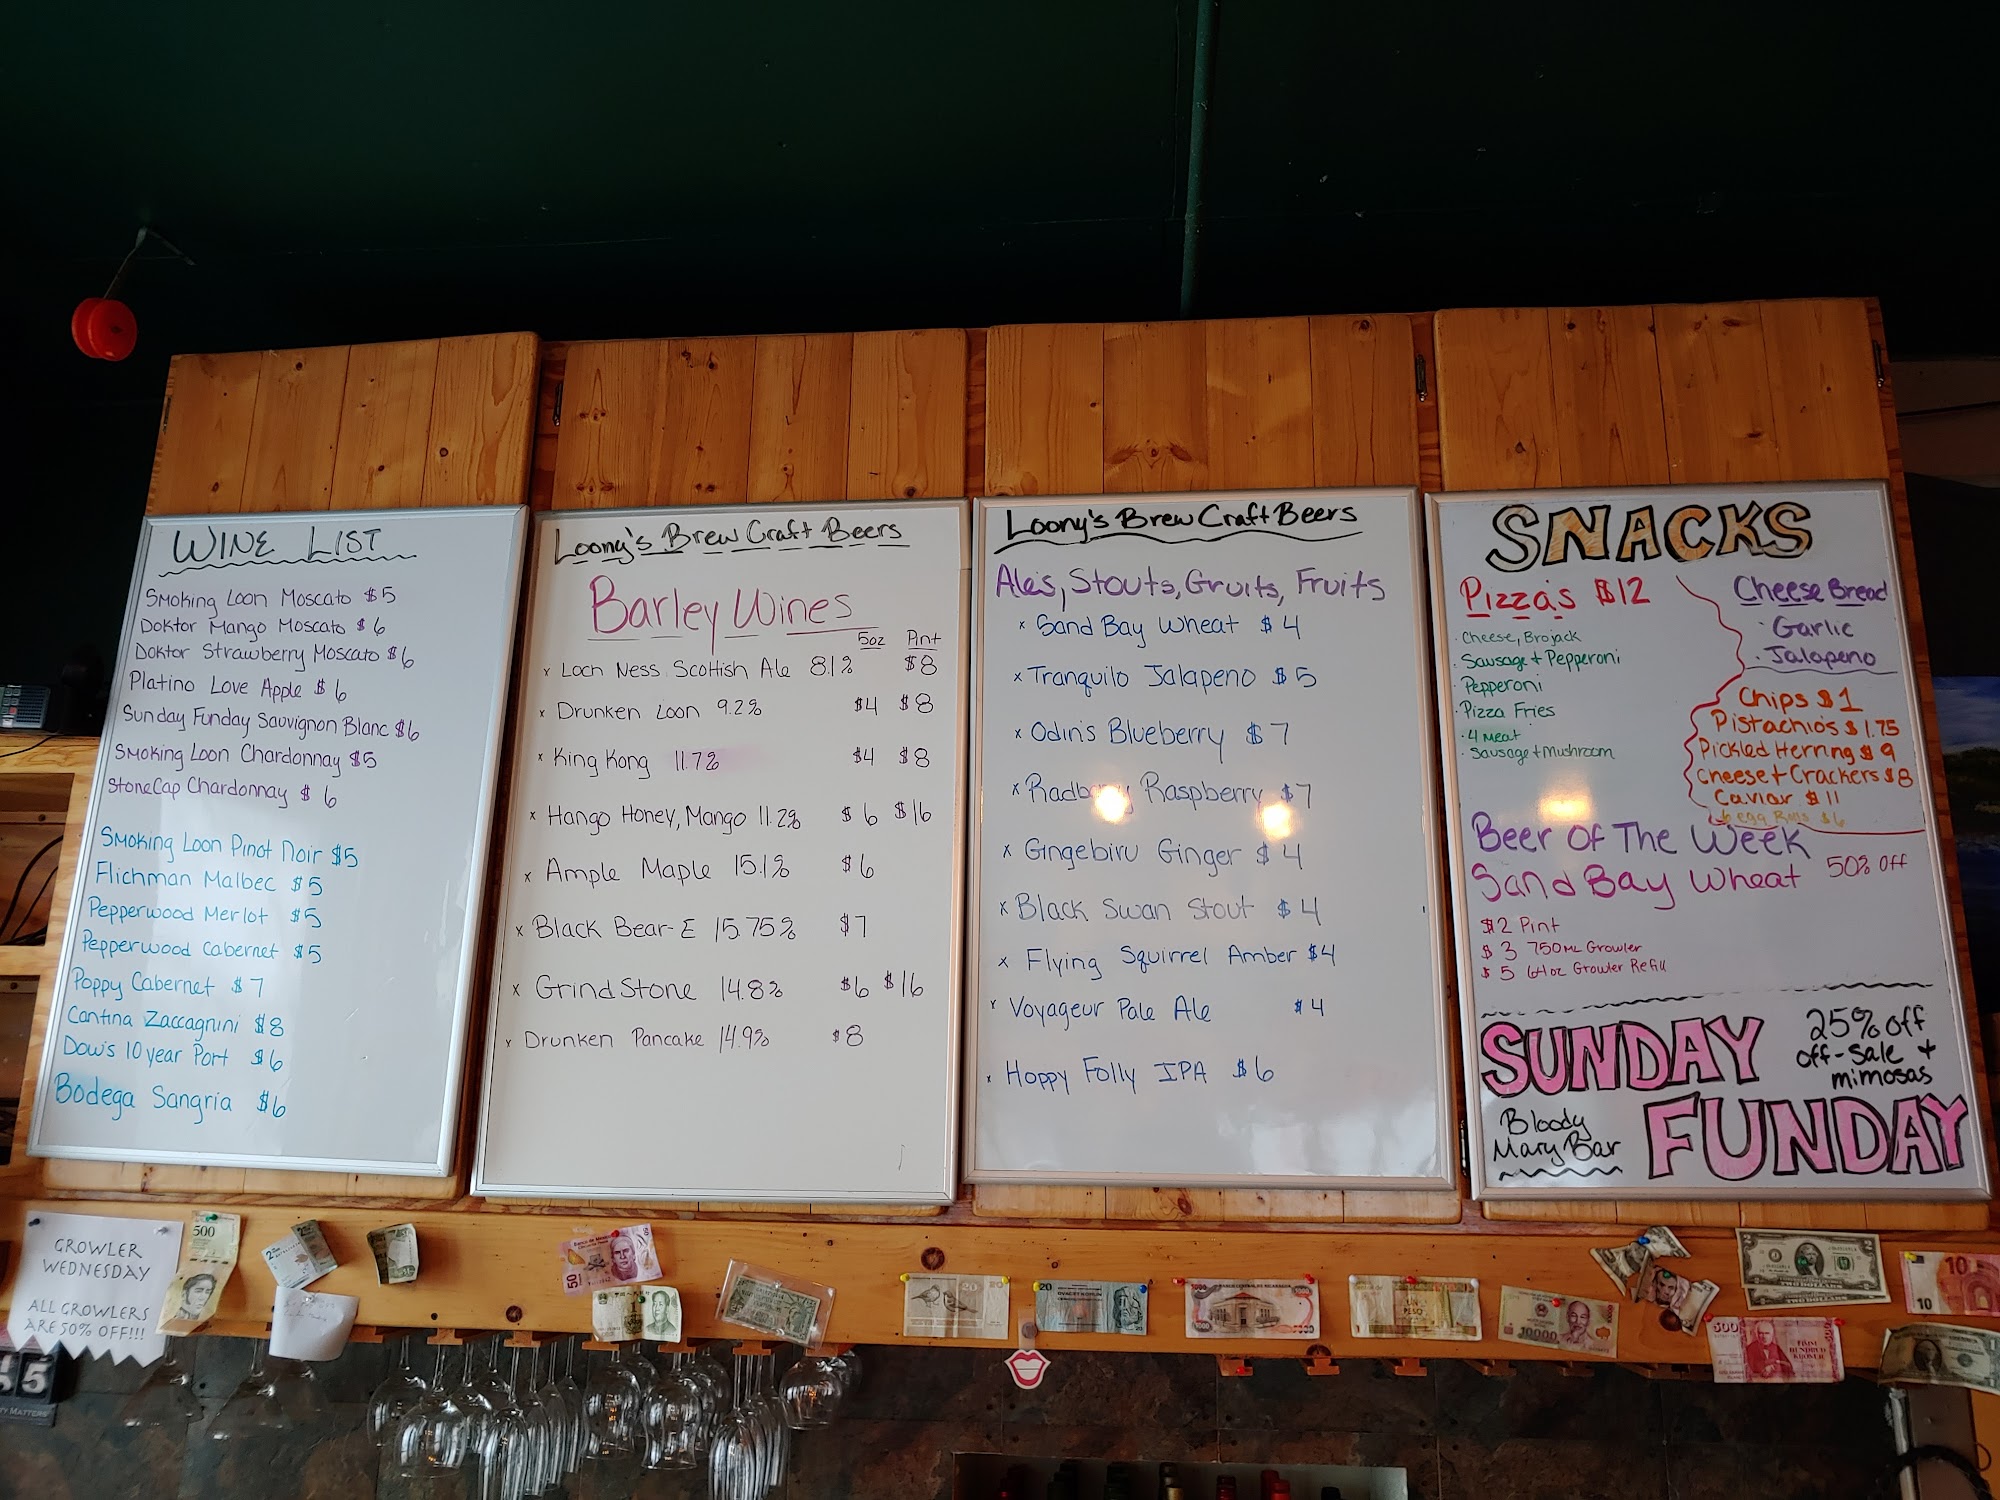 WINE LIST
Smoking Loon Moscato $5
Doktor Mango Moscato $6
Doktor Strawberry Moscato $6
Platino Love Apple $6
Sunday Funday Sauvignon Blanc $6
Smoking Loon Chardonnay $5
StoneCap Chardonnay $6
Smoking Loon Pinot Noir $5
Flichman Malbec $5
Pepperwood Merlot $5
Pepperwood Cabernet $5
Poppy Cabernet $7
Cantina Zaccagnini $8
Dow's 10 year Port $6
Bodega Sangria $6
Loony's Brew Craft Beers
Barley Wines
5oz Pint
x Loch Ness Scottish Ale 8.1% $8
x Drunken Loon 9.2% $4 $8
x King Kong 11.7% $4 $8
x Hango Honey, Mango 11.2% $6 $16
x Ample Maple 15.1% $6
x Black Bear-E 15.75% $7
x Grind Stone 14.8% $6 $16
x Drunken Pancake 14.9% $8
Loony's Brew Craft Beers
Ale's, Stouts, Gruits, Fruits
x Sand Bay Wheat $4
x Tranquilo Jalapeno $5
x Odin's Blueberry $7
x Raspberry $7
x Gingebiru Ginger $4
x Black Swan Stout $4
x Flying Squirrel Amber $4
x Voyageur Pale Ale $4
x Hoppy Folly IPA $6
SNACKS
Pizza's $12
· Cheese, Brojack
· Sausage + Pepperoni
· Pepperoni
· Pizza Fries
· 4 Meat
· Sausage + Mushroom
Cheese Bread
· Garlic
· Jalapeno
Chips $1
Pistachio's $1.75
Pickled Herring $9
Cheese + Crackers $8
Caviar $11
6 egg Rolls $6
Beer Of The Week
Sand Bay Wheat 50% Off
$2 Pint
$3 750mL Growler
$5 64oz Growler Refill
SUNDAY
FUNDAY
25% off
off-sale +
mimosas
Bloody
Mary Bar
GROWLER
WEDNESDAY
ALL GROWLERS
ARE 50% OFF!!!
500
50
1
20
20
1000
UN
PESO
10000
2
TWO DOLLARS
500
10
10
1